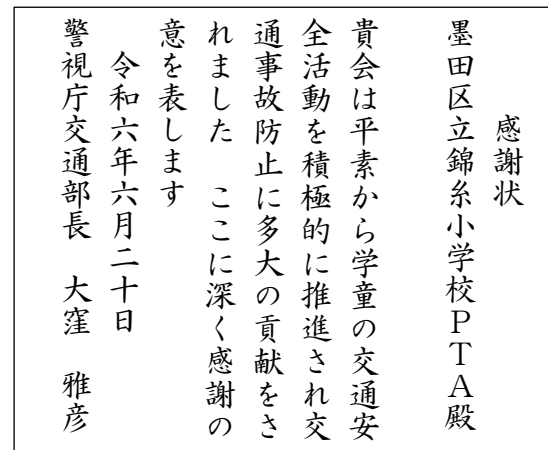 感謝状
墨田区立錦糸小学校ＰＴＡ殿
貴会は平素から学童の交通安
全活動を積極的に推進され交
通事故防止に多大の貢献をさ
れました　ここに深く感謝の
意を表します
令和六年六月二十日
警視庁交通部長　大窪　雅彦